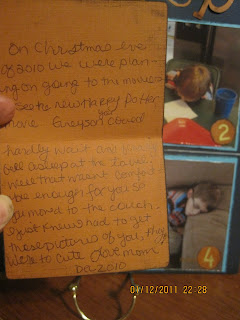 On Christmas eve
of 2010 we were plan-
ing on going to the movies
see the new Harry Potter
movie Greyson you could
hardly wait and you
fell asleep at the table.
I guess that wasn't comfort
be enough for you so
you moved to the couch.
I just knew I had to get
these pictures of you, they
were to cute Love mom
Dec 2010
2
4
01/12/2011 22:28